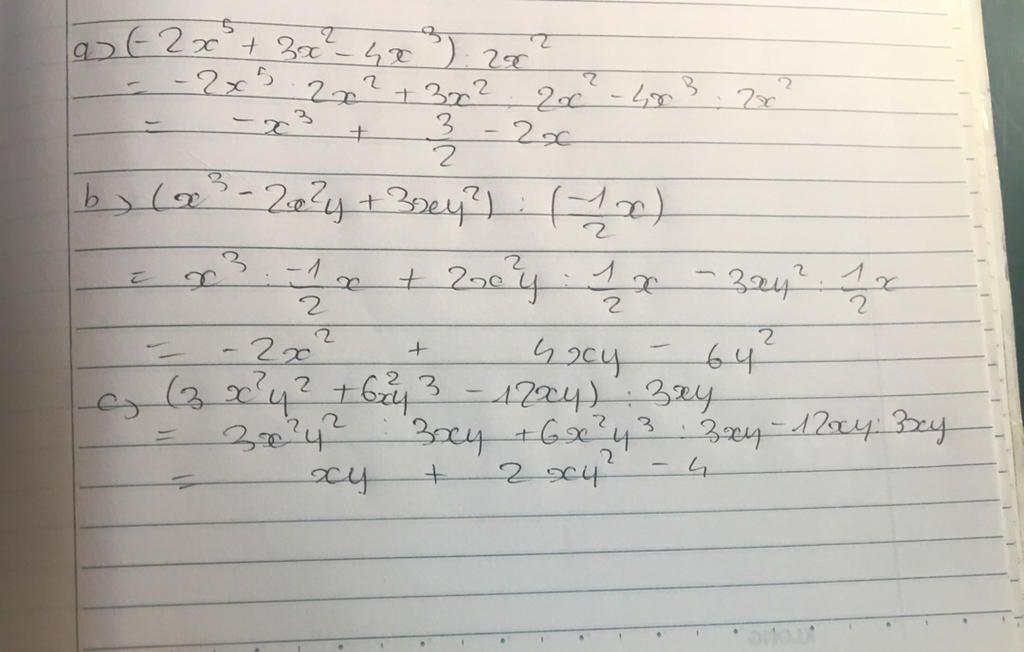 a) (-2x⁵ + 3x² - 4x³) : 2x²
= -2x⁵ : 2x² + 3x² : 2x² - 4x³ : 2x²
= -x³ + 3/2 - 2x
b) (x³ - 2x²y + 3xy²) : (-1/2 x)
= x³ : -1/2 x + 2x²y : 1/2 x - 3xy² : 1/2 x
= -2x² + 4xy - 6y²
c) (3 x²y² + 6x²y³ - 12xy) : 3xy
= 3x²y² : 3xy + 6x²y³ : 3xy - 12xy : 3xy
= xy + 2xy² - 4